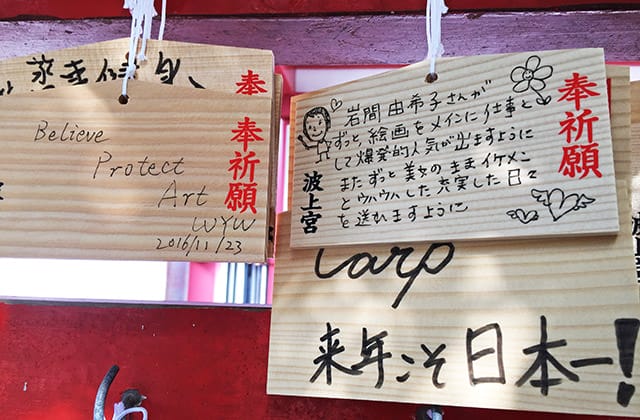 奉
奉祈願
Believe
Protect
Art
WYW
2016/11/23
奉祈願
波上宮
岩間 由希子さんが
ずっと絵画をメインに仕事と
して爆発的人気が出ますように
またずっと美女のままイケメン
とウハウハした充実した日々
を送れますように
Carp
来年こそ日本一!